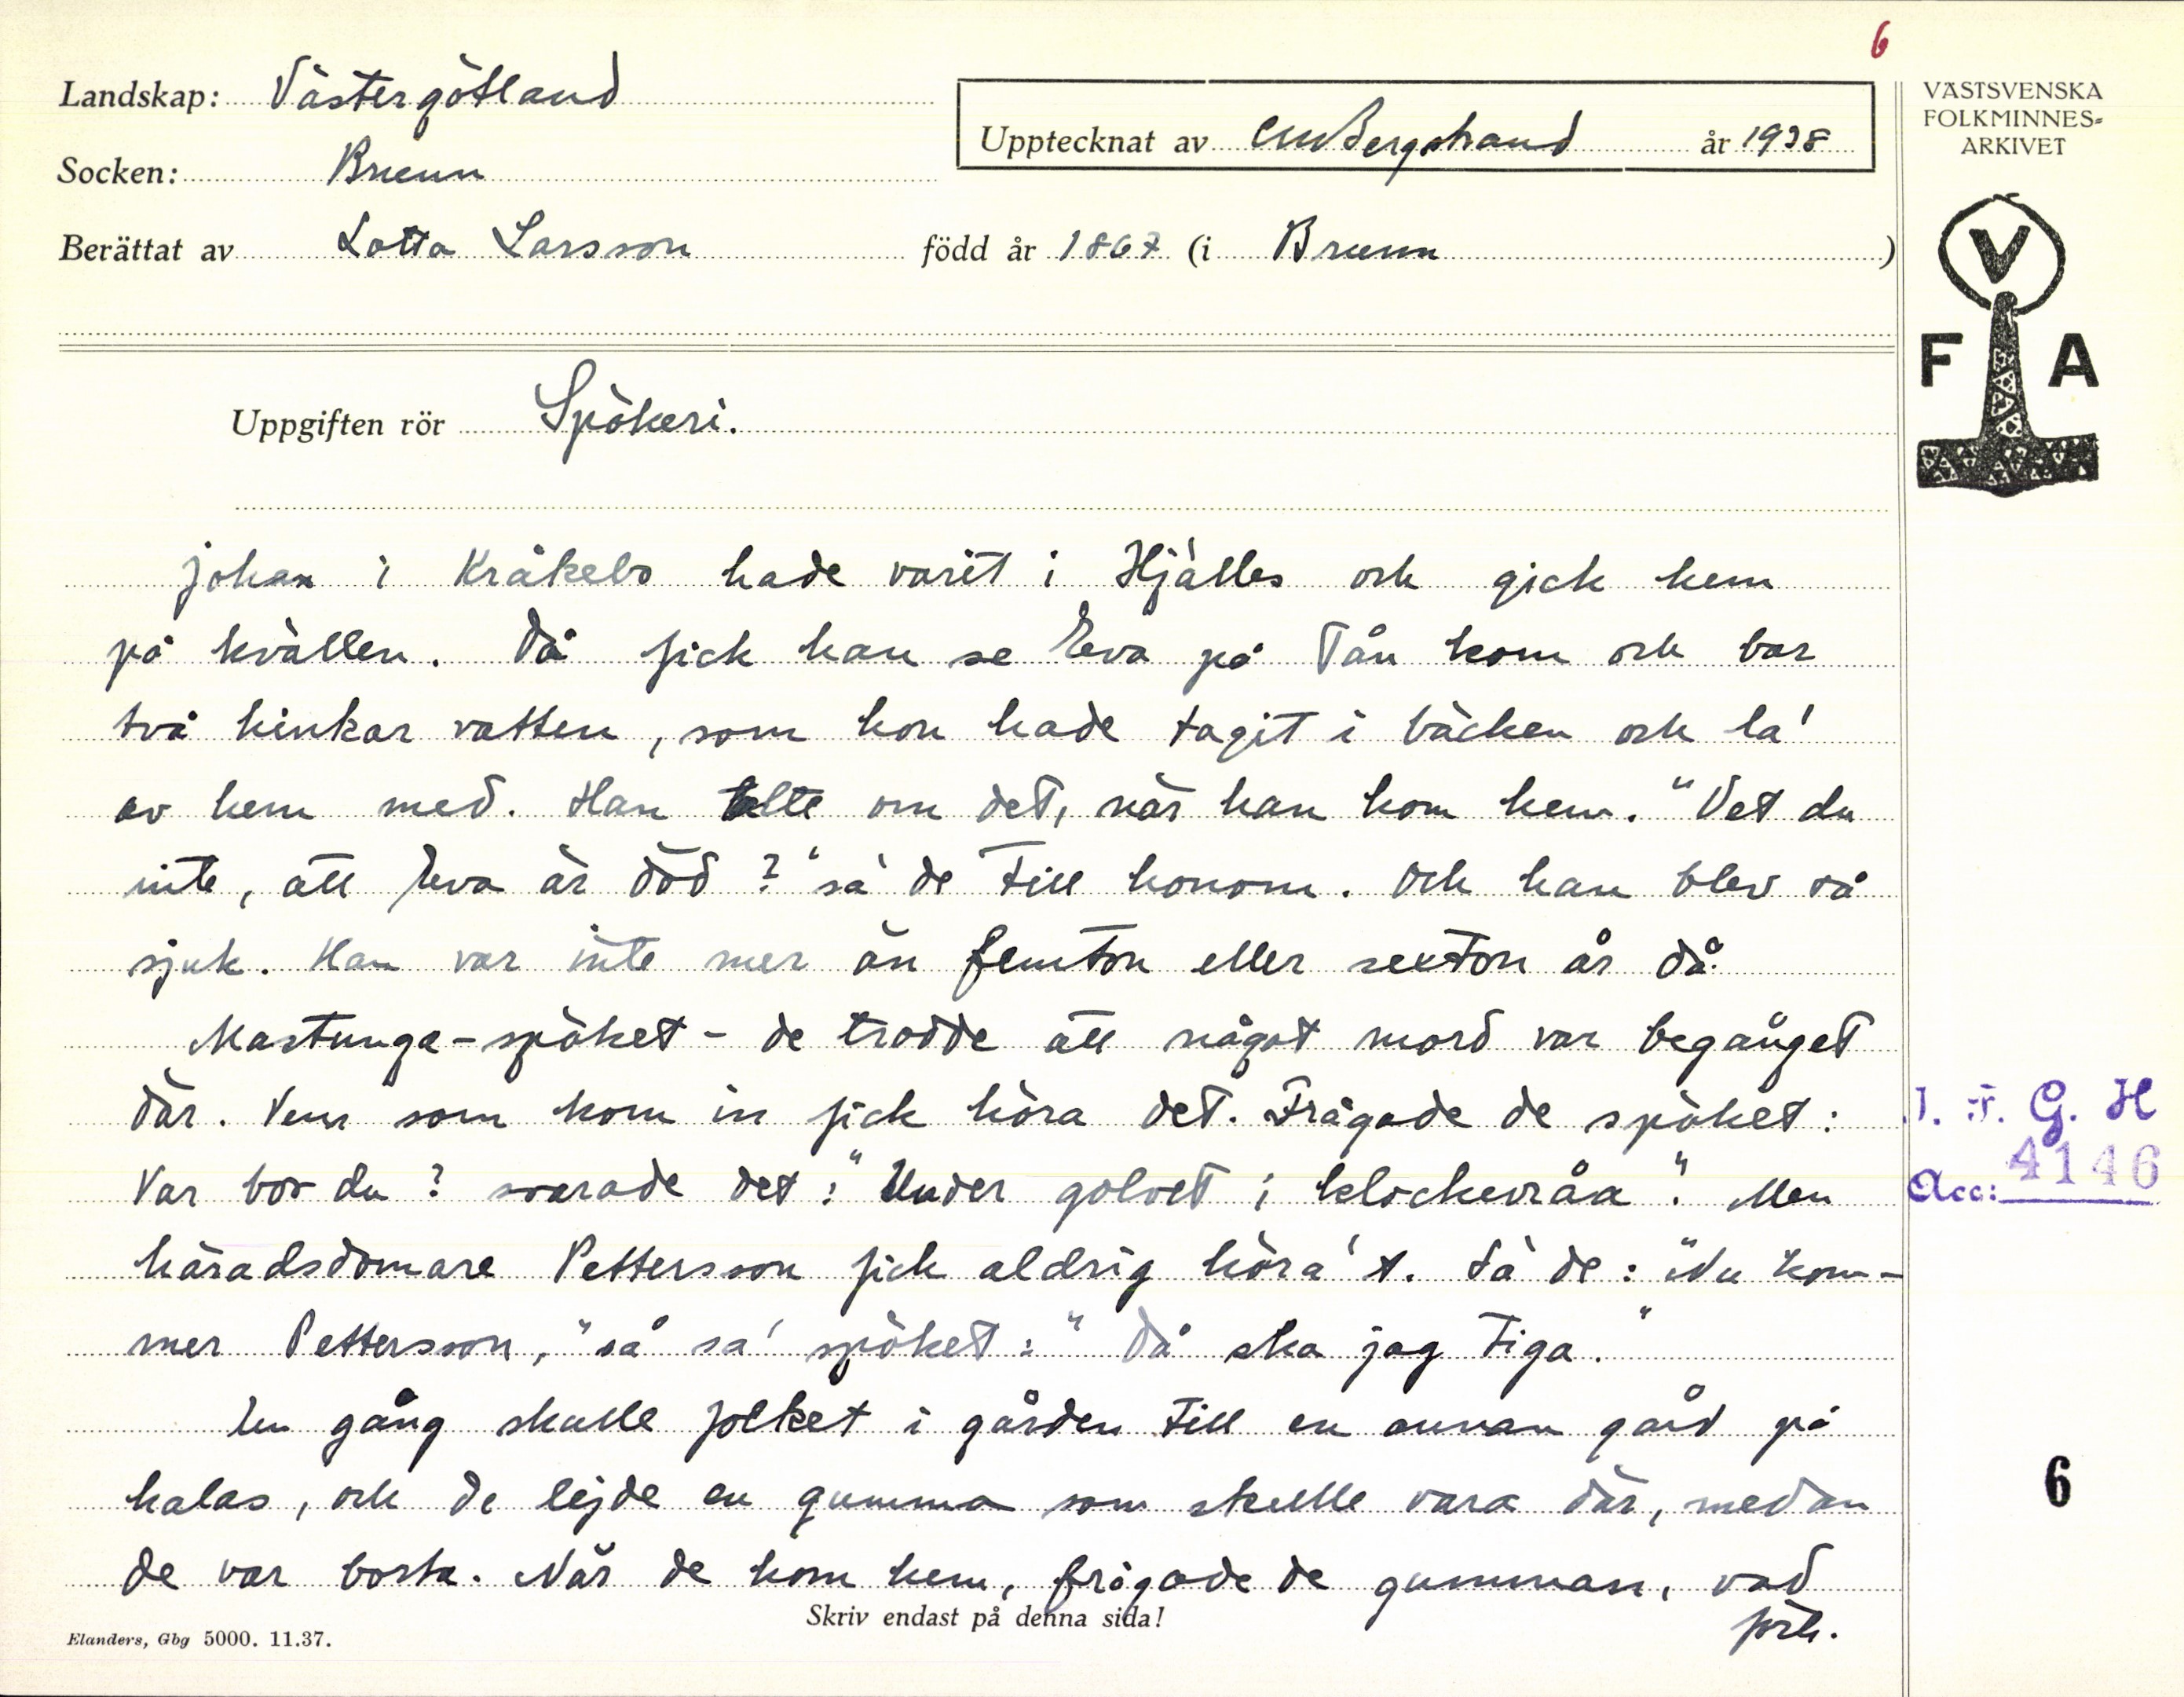 6
Landskap: Västergötland
Upptecknat av C.M. Bergstrand år 1938
VÄSTSVENSKA
FOLKMINNES-
ARKIVET
Socken: Brunn
Berättat av Lotta Larsson född år 1867 (i Brunn)
V
F A
Uppgiften rör Spökeri.
Johan i Kråkebo hade varit i Hjälles och gick hem
på kvällen. Då fick han se Eva på Tån kom och bar
två hinkar vatten, som hon hade tagit i bäcken och la'
av hem med. Han talte om det, när han kom hem. "Vet du
inte, att Eva är död?" sa' de till honom. Och han blev så
sjuk. Han var inte mer än femton eller sexton år då.
Mastunga-spöket - de trodde att något mord var begånget
där. Vem som kom in fick höra det. Frågade de spöket:
Var bor du? svarade det: "Under golvet i klockevråa". Men
häradsdomare Pettersson fick aldrig höra't. Sa' de: "Nu kom-
mer Pettersson," så sa' spöket: "Då ska jag tiga."
En gång skulle folket i gården till en annan gård på
kalas, och de lejde en gumma som skulle vara där, medan
de var borta. När de kom hem, frågade de gumman, vad
forts.
I. F. G. H
Acc: 4146
6
Skriv endast på denna sida!
Elanders, Gbg 5000. 11.37.